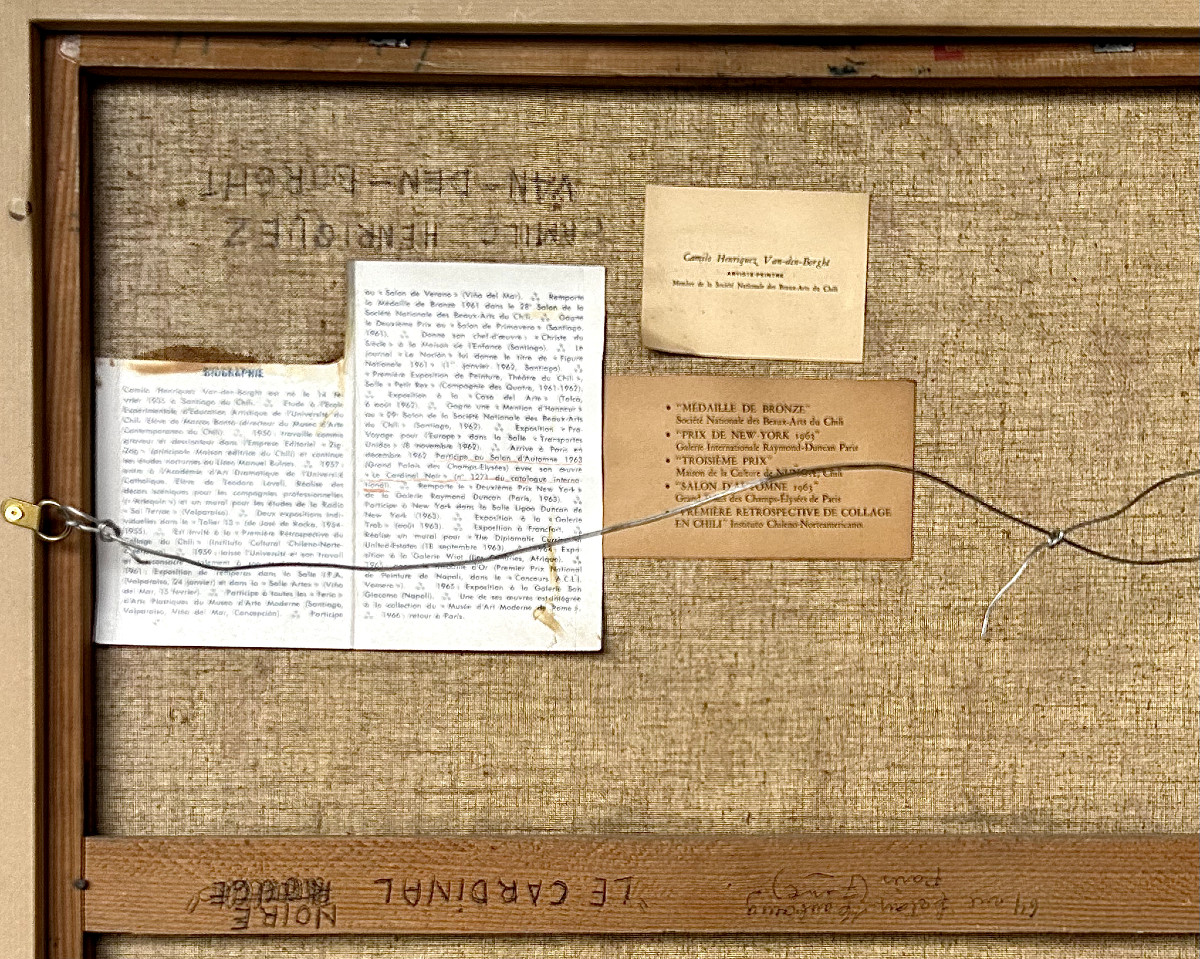 VAN-DEN-BORGHT
CAMILO HENRIQUEZ
Camilo Henriquez Van-den-Borght
ARTISTE-PEINTRE
Membre de la Société Nationale des Beaux-Arts du Chili
BIOGRAPHIE
Camilo Henriquez Van-den-Borght est né le 14 fé-
vrier 1935 à Santiago du Chili. Etude à l'Ecole
Expérimentale d'Education Artistique de l'Université du
Chili. Elève de Marcos Bonta (directeur du Musée d'Art
Contemporain du Chili). 1950 : travaille comme
graveur et dessinateur dans l'Empresa Editorial « Zig-
Zag » (principale Maison éditrice du Chili) et continue
les études nocturnes au Liceo Manuel Bulnes. 1957 :
entre à l'Académie d'Art Dramatique de l'Université
Catholique. Elève de Teodoro Lowell. Réalise des
décors scéniques pour les compagnies professionnelles
« Arlequin » et un mural pour les études de la Radio
« Sol Terrae » (Valparaiso). Deux expositions indi-
viduelles dans le « Taller 13 » (de José de Rocka, 1954-
1955). Est invité à la « Première Rétrospective du
Collage du Chili » (Instituto Cultural Chileno-Norte-
1959 : laisse l'Université et son travail
et consacre
1961 : Exposition de Temperas dans la Salle I.F.A.
(Valparaiso, 24 janvier) et dans la « Salle Artes » (Viña
del Mar, 13 février). Participe à toutes les « Feria »
d'Arts Plastiques du Musée d'Arte Moderne (Santiago,
Valparaiso, Viña del Mar, Concepción). Participe
au « Salon de Verano » (Viña del Mar). Remporte
la Médaille de Bronze 1961 dans le 28e Salon de la
Société Nationale des Beaux-Arts du Chili. Gagne
le Deuxième Prix au « Salon de Primavera » (Santiago,
1961). Donne son chef-d'œuvre : « Christe du
Siècle » à la Maison de l'Enfance (Santiago). Le
journal « La Nación » lui donne le titre de « Figure
Nationale 1961 » (1er janvier 1962, Santiago).
« Première Exposition de Peinture, Théâtre du Chili »,
Salle « Petit Rex » (Compagnie des Quatre, 1961-1962).
Exposition à la « Casa del Arte » (Talca,
6 août 1962). Gagne une « Mention d'Honneur »
au Salon de la Société Nationale des Beaux-Arts
du Chili (Santiago, 1962). Exposition « Pro-
Voyage pour l'Europe » dans la Salle « Transportes
Unidos » (8 novembre 1962). Arrive à Paris en
décembre 1962. Participe au Salon d'Automne 1963
(Grand Palais des Champs-Elysées) avec son œuvre
« Le Cardinal Noir » (n° 1271 du catalogue interna-
tional). Remporte le « Deuxième Prix New York »
de la Galerie Raymond Duncan (Paris, 1963).
Participe à New York dans la Salle Lipoa Duncan de
New York (1963). Exposition à la « Galerie
Trab » (août 1963). Exposition à Francfort.
Réalise un mural pour « The Diplomatic
United-States (18 septembre 1963). Expo-
sition à la Galerie Wiot (Des Afrique).
1965 d'Or (Premier Prix National
de Peinture de Napoli, dans le « Concours A.C.L.I.
Vomero »). 1965 : Exposition à la Galerie San
Giacomo (Napoli). Une de ses œuvres est intégrée
à la collection du « Musée d'Art Moderne de Rome ».
1966 : retour à Paris.
• "MÉDAILLE DE BRONZE"
Société Nationale des Beaux-Arts du Chili
• "PRIX DE NEW-YORK 1963"
Galerie Internationale Raymond-Duncan Paris
• "TROISIÈME PRIX"
Maison de la Culture de Chili
• "SALON D'AUTOMNE 1963"
Grand Palais des Champs-Élysées de Paris
"PREMIÈRE RETROSPECTIVE DE COLLAGE
EN CHILI" Instituto Chileno-Norteamericano
"LE CARDINAL
NOIRE"
Paris